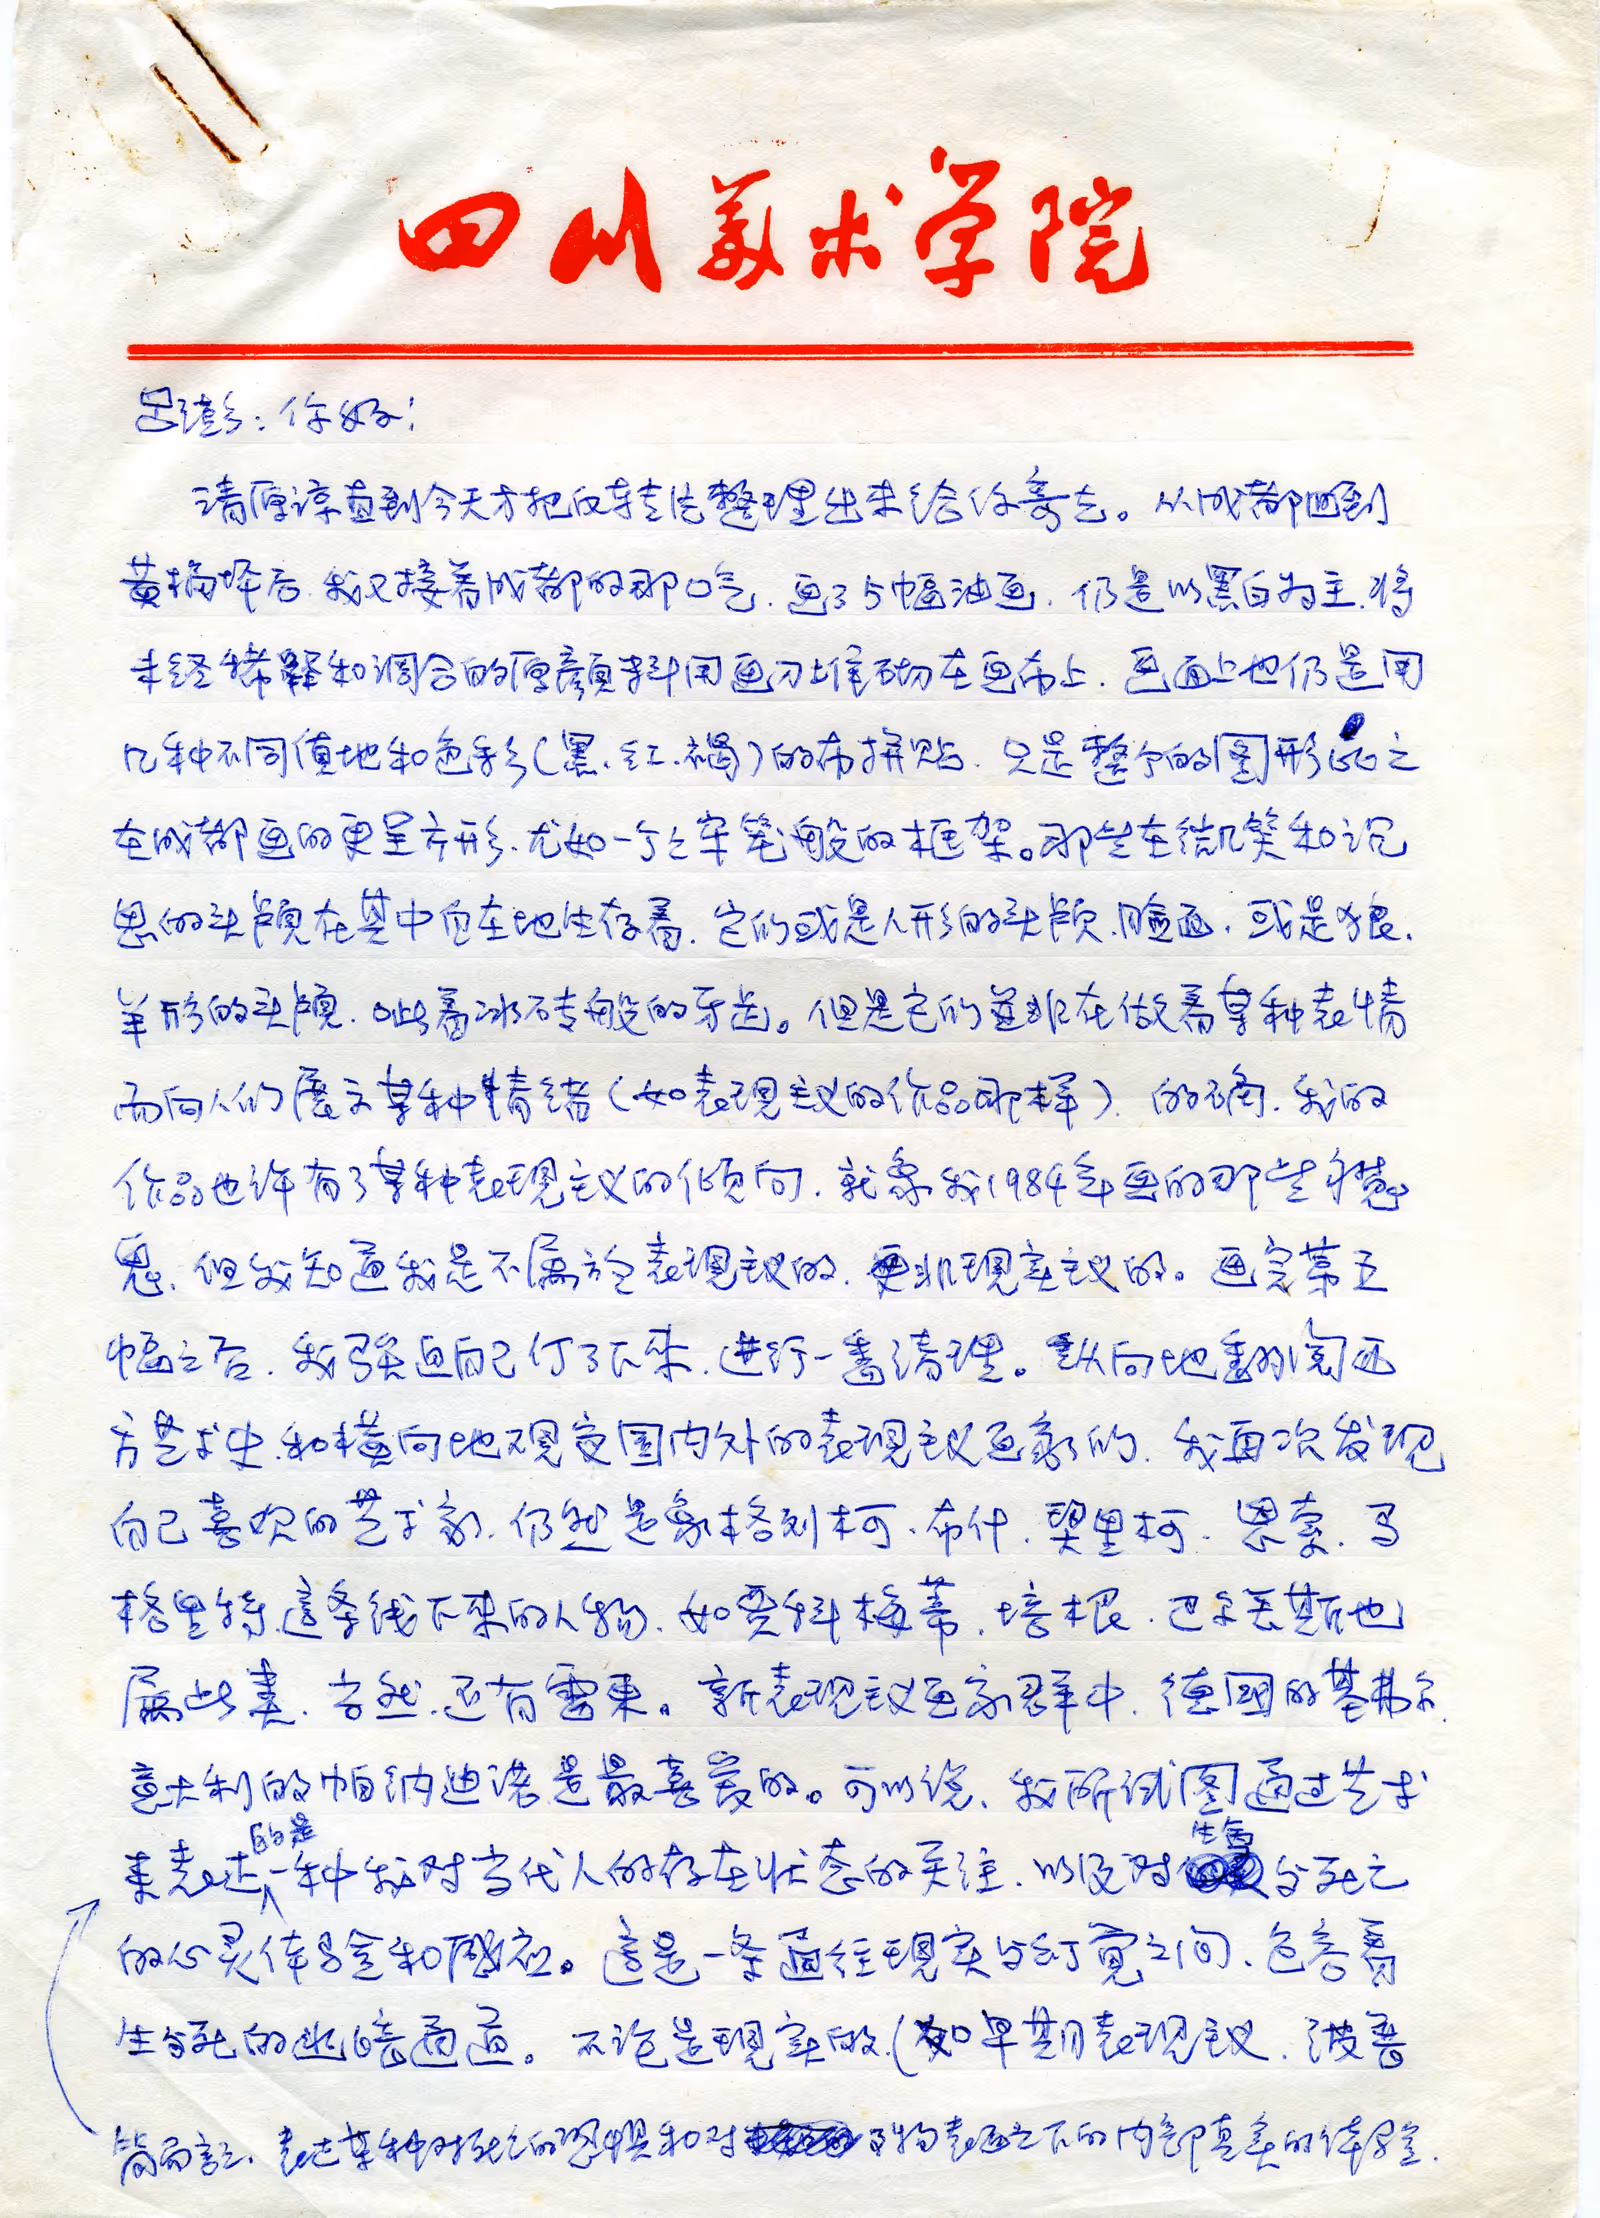 四川美术学院
吕澎：你好！
请原谅直到今天才把反转片整理出来给你寄去。从成都回到
黄桷坪后，我又接着成都的那口气，画了5幅油画，仍是以黑白为主，将
未经稀释和调合的厚颜料用画刀堆砌在画布上，画面上也仍是用
几种不同质地和色彩（黑、红、褐）的布拼贴，只是整个的图形比之
在成都画的更呈方形，尤如一个个牢笼般的框架。那些在微笑和沉
思的头颅在其中自在地生存着，它们或是人形的头颅、脸面，或是狼、
羊形的头颅，呲着冰砖般的牙齿。但是它们並非在做着某种表情
而向人们展示某种情绪（如表现主义的作品那样），的确，我的
作品也许有了某种表现主义的倾向，就象我1984年画的那些
，但我知道我是不属於表现主义的，更非现实主义的。画完第五
幅之后，我强迫自己停了下来，进行一番清理。纵向地翻阅西
方艺术史，和横向地观变国内外的表现主义画家们，我再次发现
自己喜欢的艺术家，仍然是象格列柯、布什、契里柯、恩索、马
格里特，這条线下来的人物，如贾科梅蒂、培根、巴尔丢斯也
属此类，当然，还有雷东。新表现主义画家群中，德国的基弗尔，
意大利的帕纳迪诺是最喜爱的。可以说，我所试图通过艺术
来表达的是一种我对当代人的存在状态的关注，以及对生命与死亡
的心灵体验和感应。這是一条通往现实与幻觉之间，包容着
生与死的幽暗通道。不论是现实的（如早期表现主义，波普
简而言之，表达某种对死亡的恐惧和对事物表面之下的内部真实的体验。